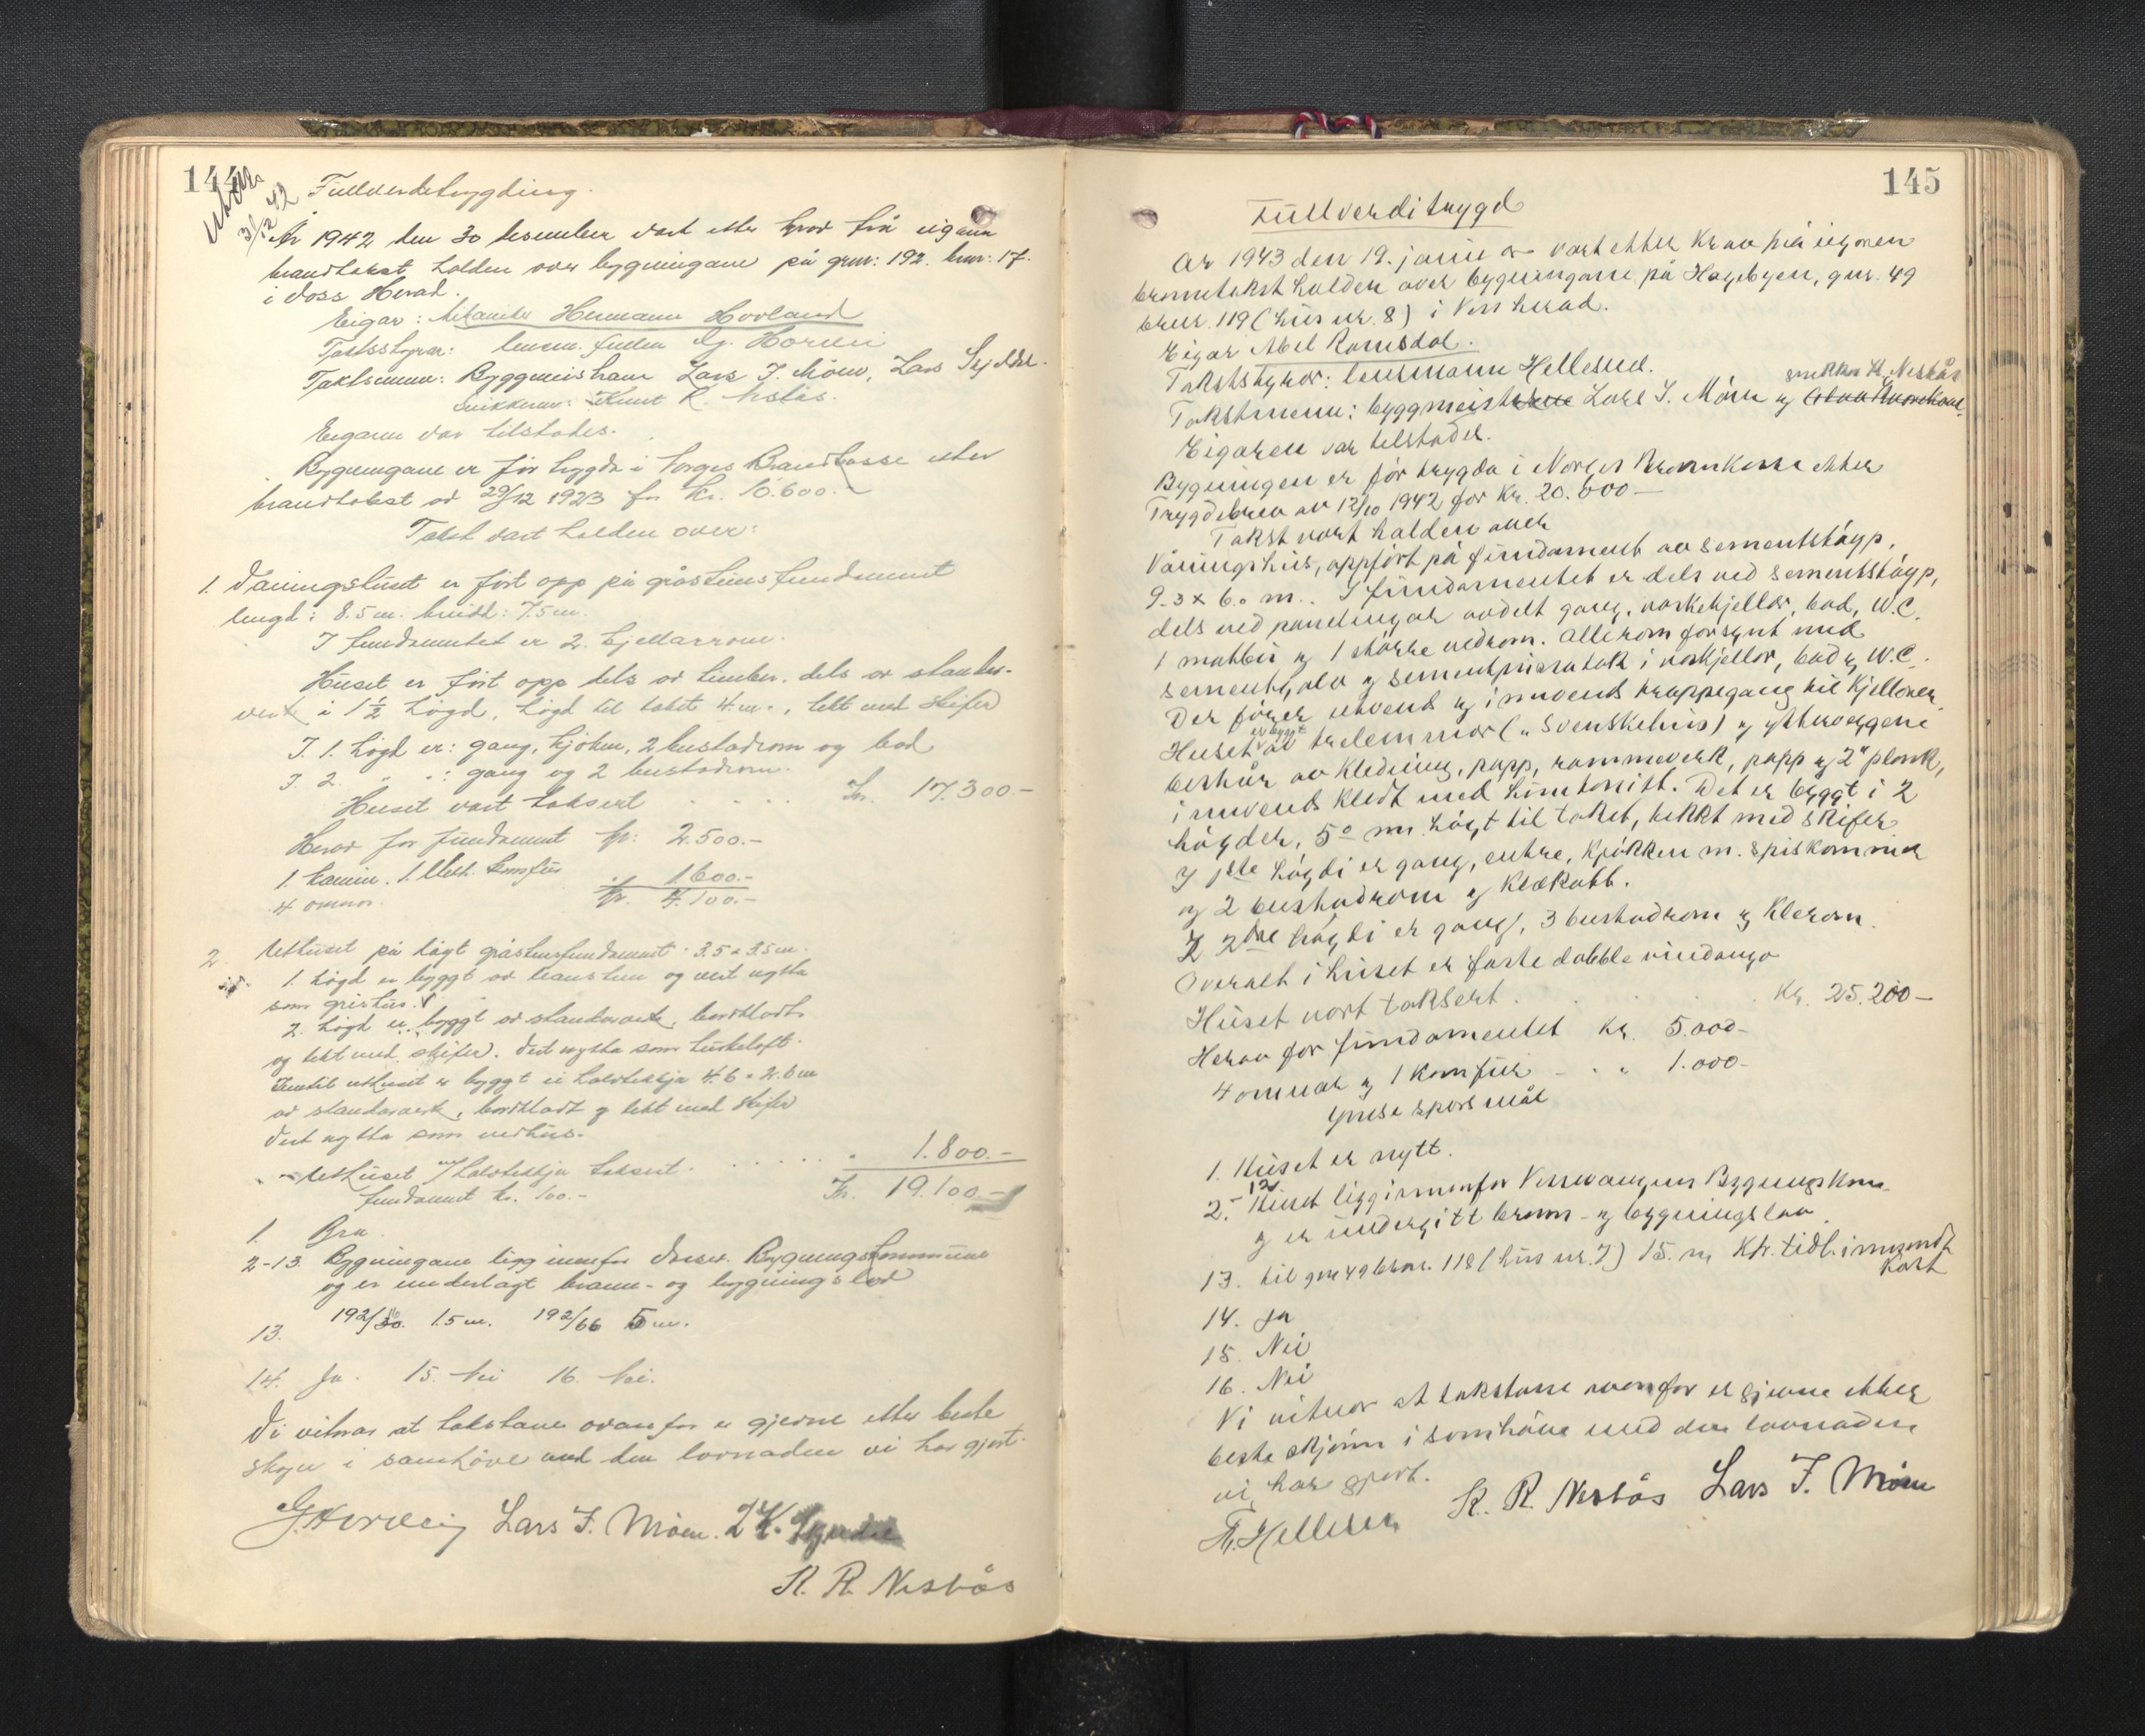 144
3/12 42
Fullverdetrygding.
År 1942 den 30 desember vart etter krav frå eigaren
brandtakst halden over bygningane på gnr: 192. bnr: 17.
i Voss Herad.
Eigar: Mekaniker Hermann Hovland
Takstsstyrar: lensm. fullm. G. Horvei
Takstmenn: Byggmeistrane Lars J. Møen, Lars
snikkar: Knut R. Nesbås.
Eigaren var tilstades.
Bygningane er før trygda i Norges Brandkasse etter
brandtakst av 29/12 1923 for kr. 10.600.-
Takst vart halden over:
1. Våningshuset er ført opp på gråsteinsfundament
lengd: 8.5 m. breidd: 7.5 m.
I fundamentet er 2 kjellarrom.
Huset er ført opp dels av timber, dels av stender-
verk i 1½ høgd, høgd til taket 4. m., tekt med skifer
I. 1. høgd er: gang, kjøken, 2 bustadrom og bad
I. 2. " " : gang og 2 bustadrom.
Huset vart taksert . . . . kr. 17.300-
Herav for fundament kr: 2.500.-
1. kamin. 1. elektr. komfur
4 omnar. " 1600.-
kr. 4.100.-
2. Uthuset på høgt gråsteinsfundament. 3.5 x 3.5 m.
1. høgd er bygt av and vert nytta
som grishus.
2. høgd er byggt av standarverk, bordkledt
og tekt med skifer. Vert nytta som
Inntil uthuset er byggt ei 4.6 x 2.6 m
av standarverk, bordkledt og tekt med skifer
Vert nytta som vedhus.
Uthuset m/ taksert. . . . . . 1.800.-
fundament kr. 100.- Kr. 19.100.-
1. Bra
2-13 Bygningane ligg innafor Vossev. Bygningskommune
og er underlagt brann- og bygningslov
13. 192/30 1.5 m. 192/66 5 m.
14. Ja. 15. Nei 16. Nei.
Vi vitnar at takstane ovanfor er gjerne etter beste
skyn i samhøve med den lovnaden vi har gjort.
G. Horvei Lars J. Møen. L K.
K. R. Nesbås
145
Fullverditrygd
Ar 1943 den 19. januar vart etter krav frå eigaren
branntakst halden over bygningane på Hagebyen, gnr. 49
bnr. 119 (hus nr. 8) i Voss herad.
Eigar Abel Ramsdal.
Takststyrar: lensmann Hellesen.
snikkar K. Nesbås
Takstmenn: byggmeistrane Lars J. Møen og
Eigaren var tilstades.
Bygningen er før trygda i Norges Brannkasse etter
Trygdebrev av 12/10 1942 for kr. 20.000-
Takst vart halden over
Våningshus, oppført på fundament av sementstøyp,
9.3 x 6.0 m. I fundamentet er dels ved sementstøyp,
dels ved panelingar avdelt gang, vaskekjellar, bad, W.C.
1 matbu og 1 større vedrom. Alle rom forsynt med
sementgolv og sementpussa tak i vaskjellar, bad og W.C.
Der fører utvends og innvends trappegang til kjellaren.
er bygt
Huset av trelemmar ("Svenskehus) og ytterveggene
består av kledning, papp, rammeverk, papp og 2" plank,
innvends kledt med huntonitt. Det er byggt i 2
høgder, 5º m. høgt til taket, tekkt med skifer.
I 1ste høgdi er gang, entre, kjøkken m. spiskammer
og 2 bustadrom og kleskott.
I 2dre høgdi er gang, 3 bustadrom og klerom.
Overalt i huset er faste doble vindaugo
Huset vart taksert . . . . . Kr. 25.200-
Herav for fundamentet kr. 5.000-
4 omnar og 1 komfur - . " 1.000-
Ymse spørsmål
1. Huset er nytt.
2.-12 Huset ligg innanfor Vossevangen Bygningskom.
og er undergitt brann- og bygningslov.
13. til gnr 49 bnr. 118 (hus nr. 7) 15. m. Kfr. tidl. innsendt
kart
14. Ja
15. Nei
16. Nei
Vi vitnar at takstane ovanfor er gjerne etter
beste skjønn i samhøve med den lovnaden
vi har gjort.
Hellesen K. R. Nesbås Lars J. Møen